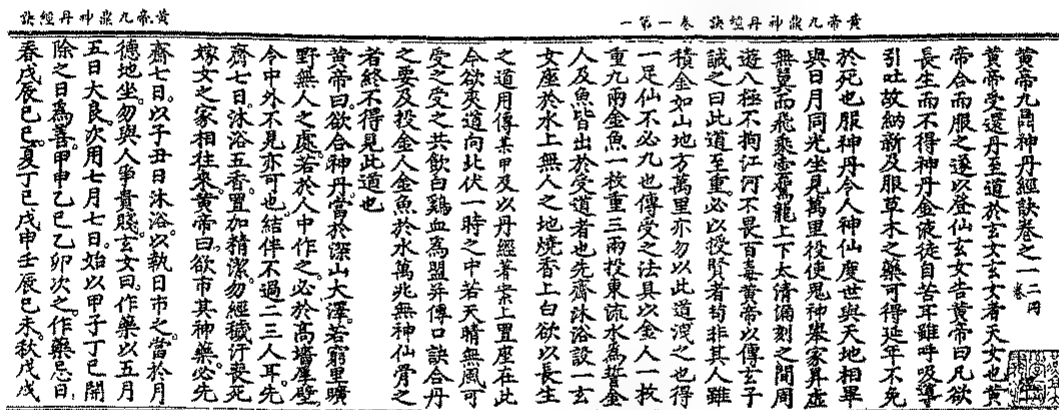 黃帝九鼎神丹經訣 卷一第一
黃帝九鼎神丹經訣
黃帝九鼎神丹經訣卷之一 二同卷
黃帝受還丹至道於玄女玄女者天女也黃
帝合而服之遂以登仙玄女告黃帝曰凡欲
長生而不得神丹金液徒自苦耳雖呼吸導
引吐故納新及服草木之藥可得延年不免
於死也服神丹令人神仙度世與天地相畢
與日月同光坐見萬里役使鬼神舉家昇虛
無翼而飛乘雲駕龍上下太清漏刻之間周
遊八極不拘江河不畏百毒黃帝以傳玄子
誡之曰此道至重必以授賢者苟非其人雖
積金如山地方萬里亦勿以此道洩之也得
一足仙不必九也傳受之法具以金人一枚
重九兩金魚一枚重三兩投東流水為誓金
人及魚皆出於受道者也先齋沐浴設一玄
女座於水上無人之地燒香上白欲以長生
之道用傳某甲及以丹經著案上置座在此
今欲受道向北伏一時之中若天晴無風可
受之受之共飲白雞血為盟并傳口訣合丹
之要及投金人金魚於水萬兆無神仙骨之
者終不得見此道也
黃帝曰欲合神丹當於深山大澤若窮里曠
野無人之處若於人中作之必於高墻厚壁
令中外不見亦可也結伴不過二三人耳先
齋七日沐浴五香置加精潔勿經穢汙喪死
嫁女之家相往來黃帝曰欲市其神藥必先
齋七日以子丑日沐浴以執日市之當於月
德地坐勿與人爭貴賤玄女曰作藥以五月
五日大良次用七月七日始以甲子丁巳開
除之日為善甲申乙巳乙卯次之作藥忌日
春戊辰己巳夏丁巳戊申壬辰己未秋戊戌